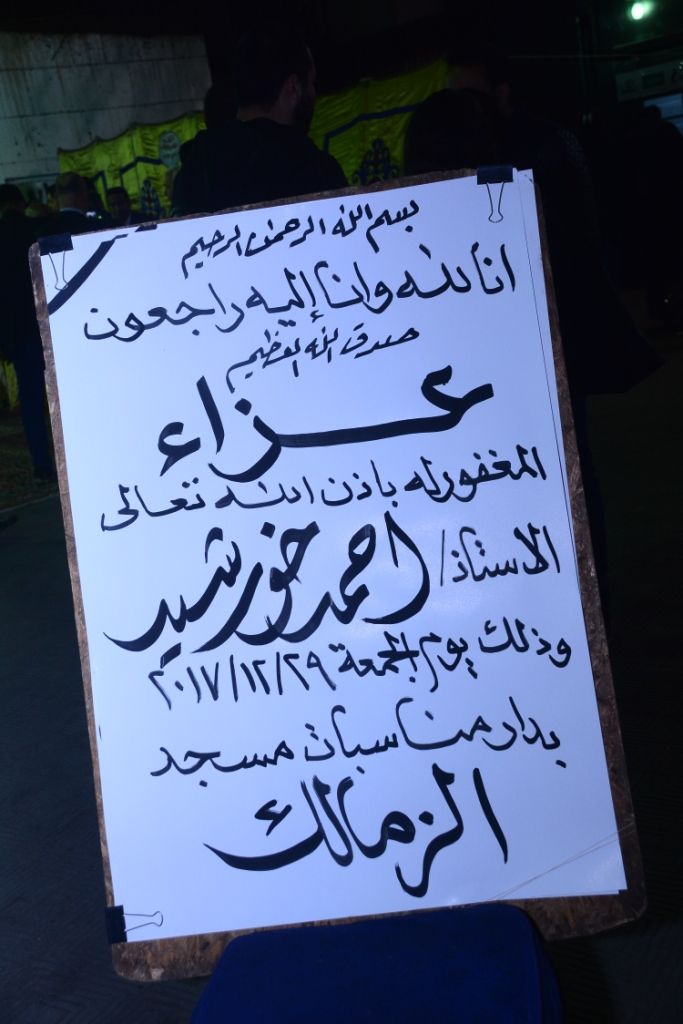 بسم الله الرحمن الرحيم
انا لله وانا إليه راجعون
صدق الله العظيم
عزاء
المغفور له باذن الله تعالى
الاستاذ/ احمد خورشيد
وذلك يوم الجمعة ٢٠١٧/١٢/٢٩
بدار مناسبات مسجد
الزمالك